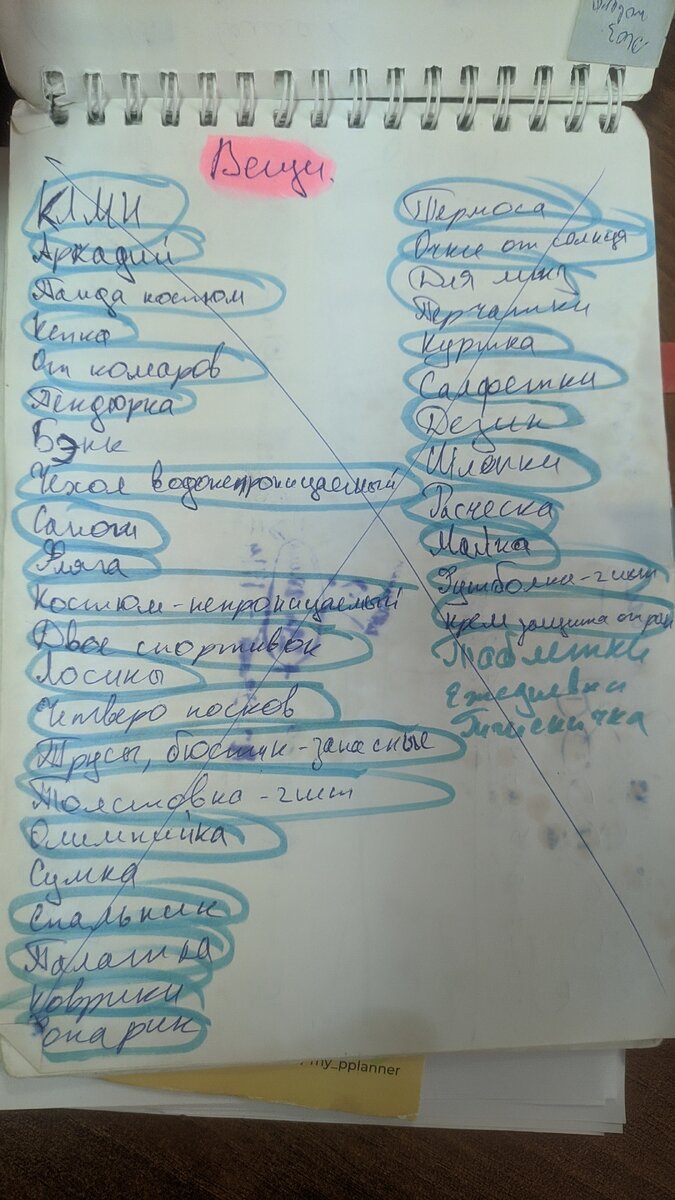 Вещи.
КЛМН
Аркадий
Панда костюм
Кепка
От комаров
Пендюрка
Бэнк
Чехол водонепроницаемый
Сапоги
Фляга
Костюм-непроницаемый
Двое спортивок
Лосины
Четверо носков
Трусы, бюстик-запасные
Толстовка-2шт
Олимпийка
Сумка
Спальник
Палатка
Коврики
Фонарик
Термоса
Очки от солнца
Для линз
Перчатки
Куртка
Салфетки
Дезик
Шлепки
Расческа
Майка
Футболка-2шт
Крем защита от ран
Таблетки
Ежедневки
my_pplanner